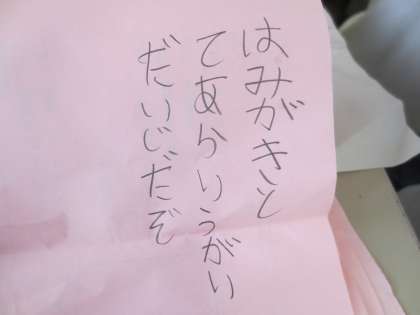 はみがきと
てあらいうがい
だいじだぞ